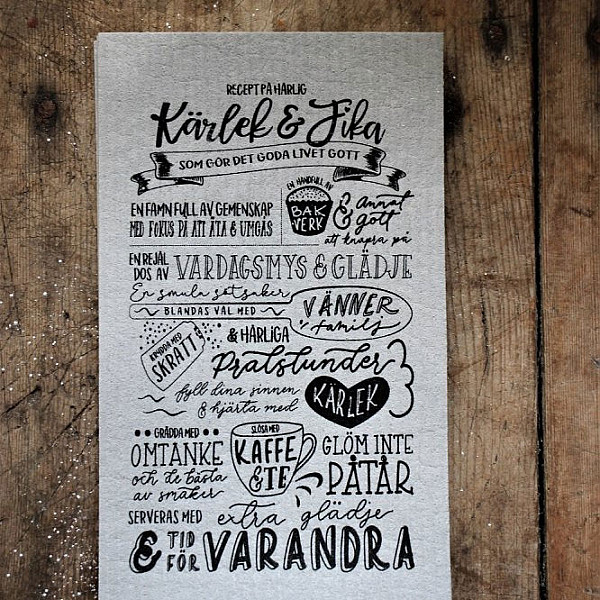 RECEPT PÅ HÄRLIG
Kärlek & Fika
SOM GÖR DET GODA LIVET GOTT
EN FAMN FULL AV GEMENSKAP
MED FOKUS PÅ ATT ÄTA & UMGÅS
EN HANDFULL AV
BAK
VERK
& annat
gott
att knapra på
EN REJÄL
DOS AV VARDAGSMYS & GLÄDJE
En smula sötsaker
BLANDAS VÄL MED
VÄNNER
familj
KRYDDA MED
SKRATT
& HÄRLIGA
Pratstunder
fyll dina sinnen
& hjärta med
KÄRLEK
GRÄDDA MED
OMTANKE
och de bästa
av smaker
SLÖSA MED
KAFFE
& TE
GLÖM INTE
PÅTÅR
SERVERAS MED extra glädje
& TID
FÖR VARANDRA